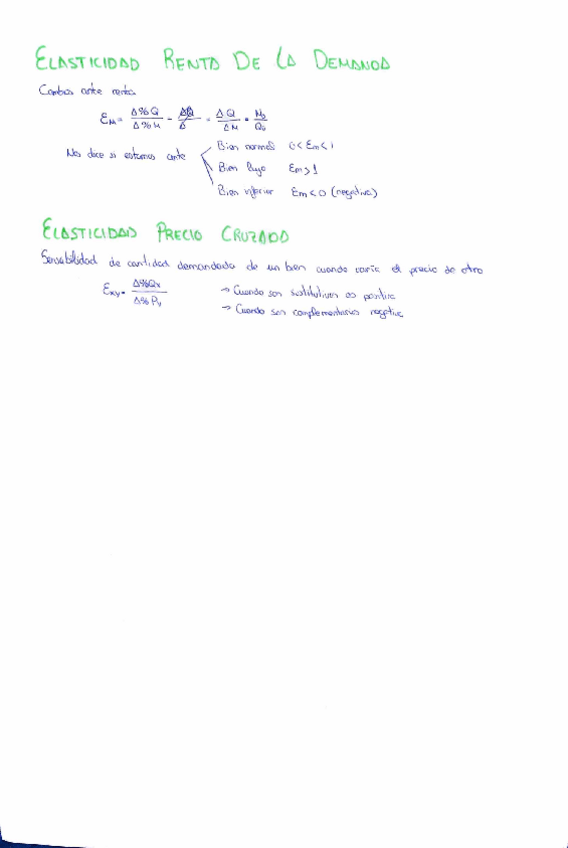 ELASTICIDAD RENTA DE LA DEMANDA
Cambios ante renta
EM = Δ%Q / Δ%M = ΔQ / Δ = ΔQ / ΔM · M0 / Q0
Nos dice si estamos ante
Bien normal 0 < Em < 1
Bien lujo Em > 1
Bien inferior Em < 0 (negativa)
ELASTICIDAD PRECIO CRUZADA
Sensibilidad de cantidad demandada de un bien cuando varía el precio de otro
Exy = Δ%Qx / Δ%Py
→ Cuando son sustitutivos es positiva
→ Cuando son complementarios negativa